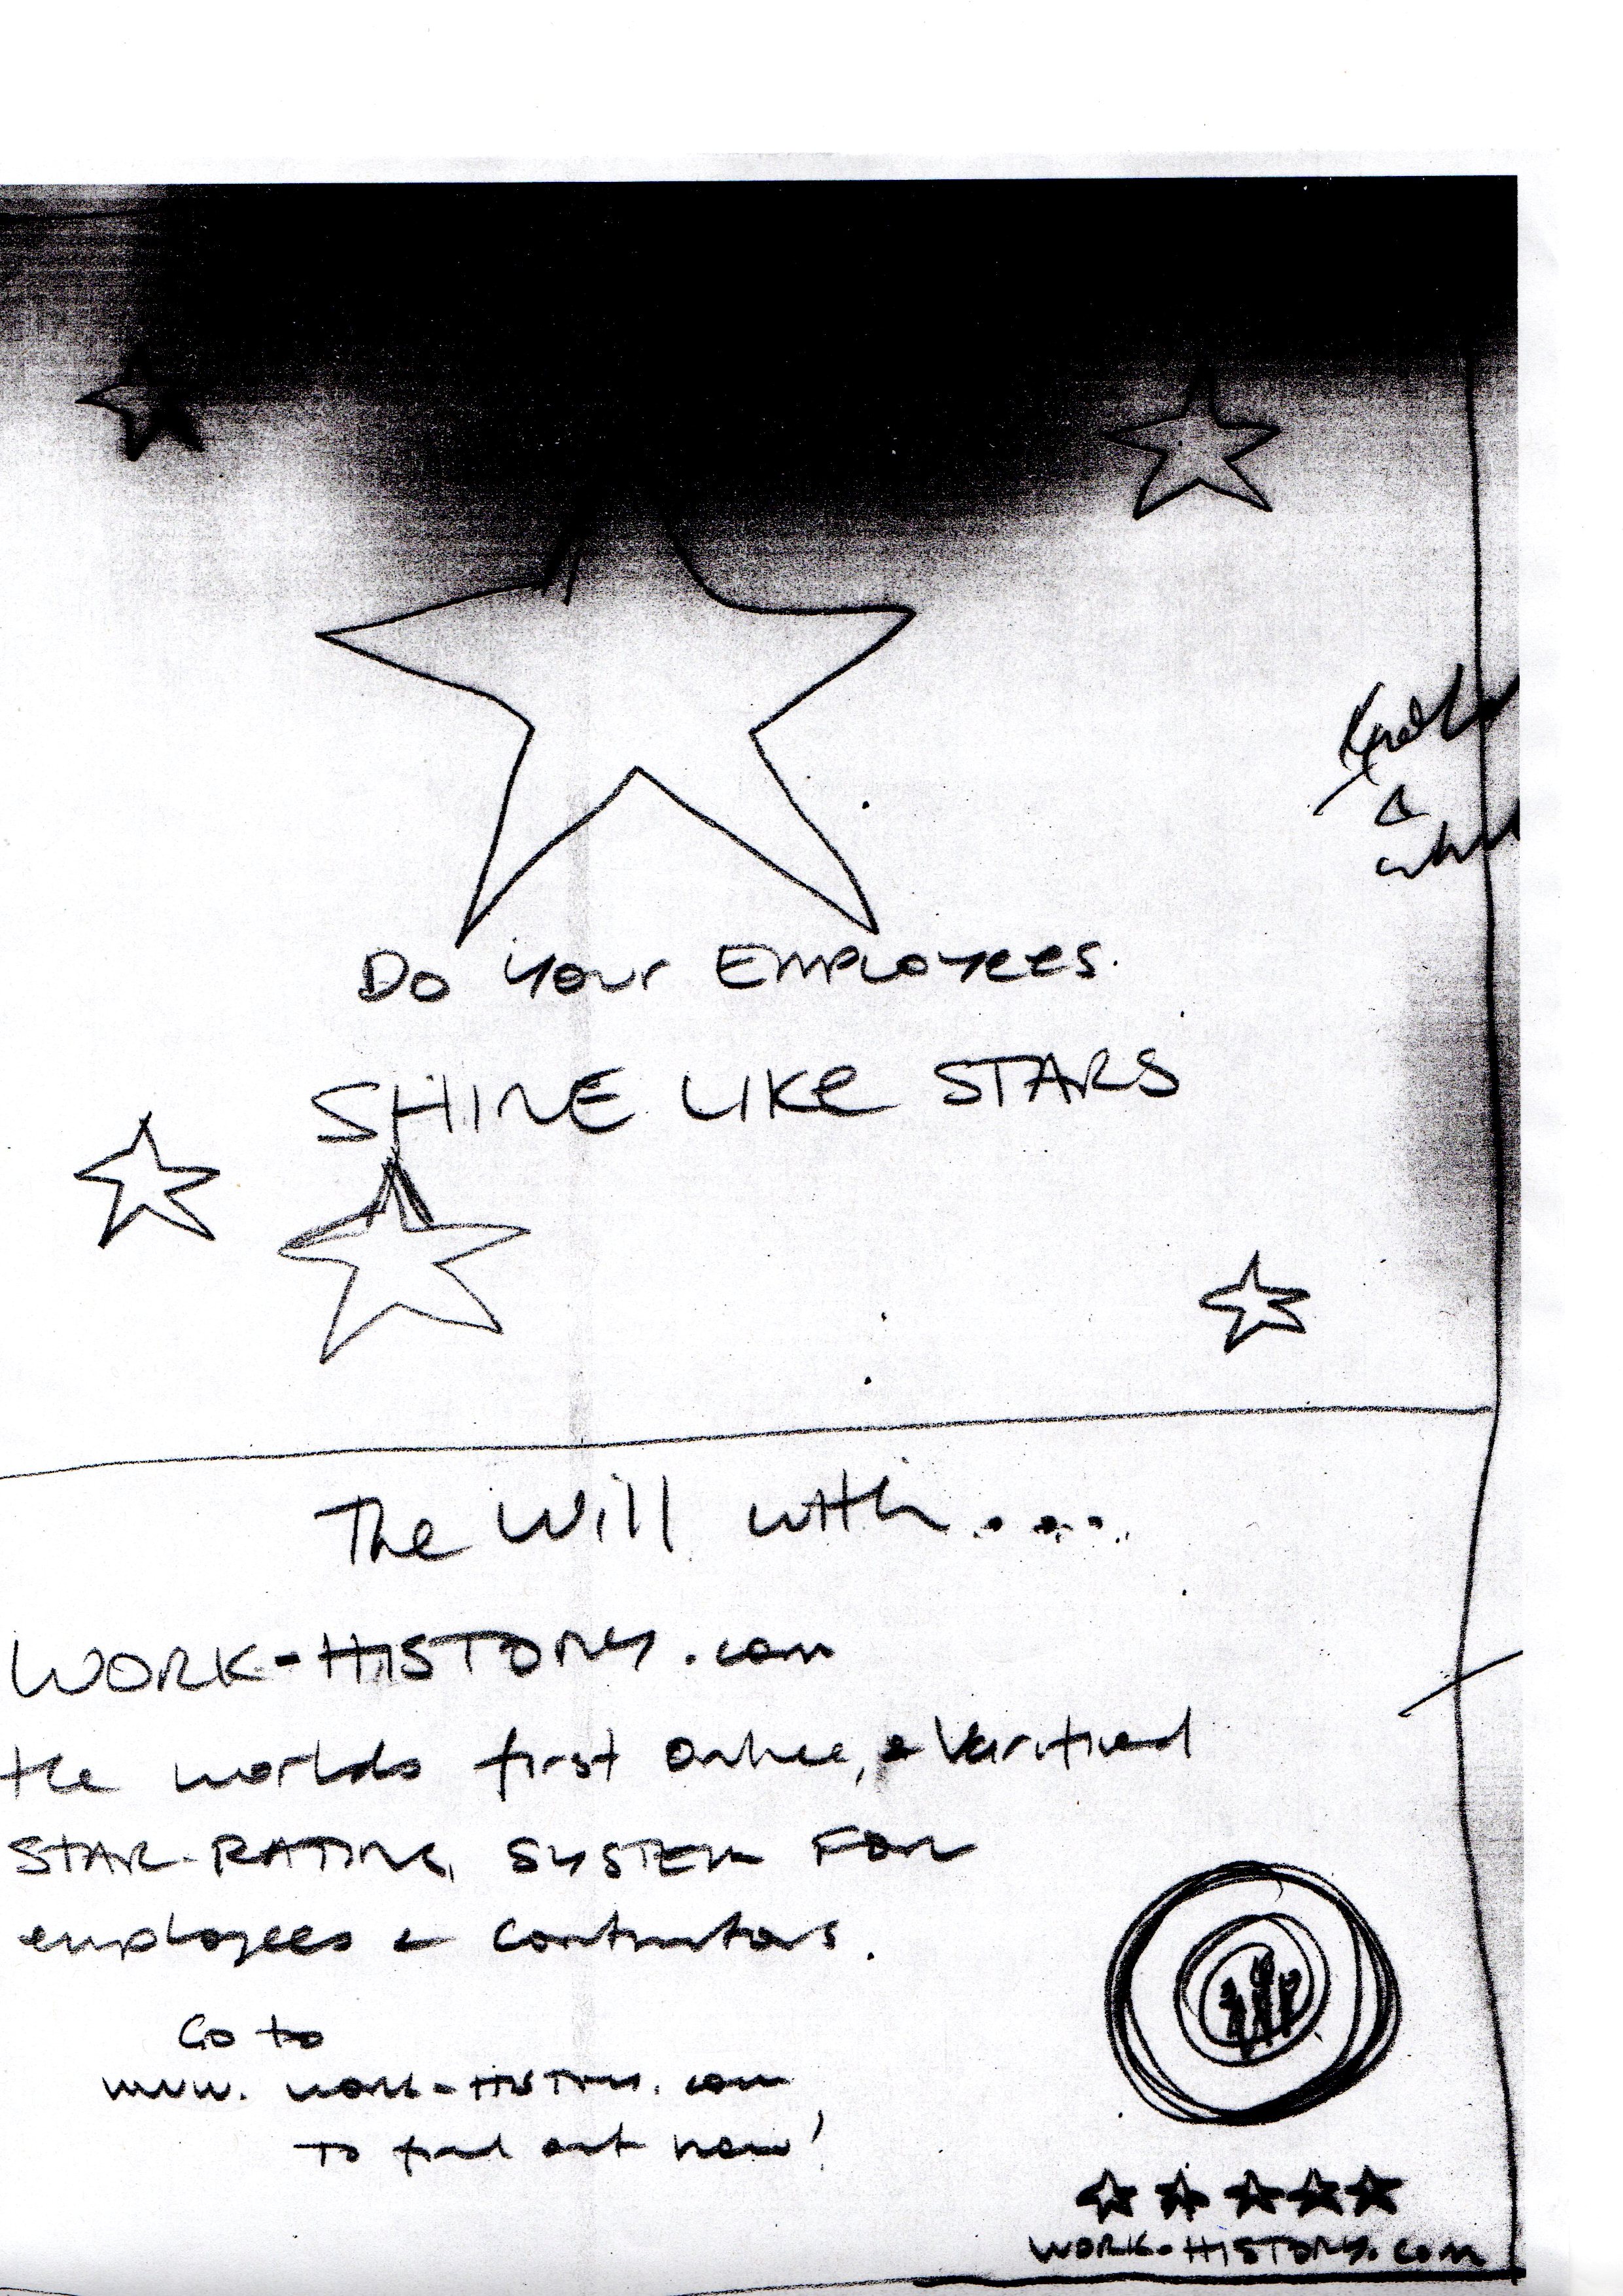 Do Your Employees.
SHINE LIKE STARS
The Will with.....
WORK-HISTORY.com
the worlds first online, a Verified
STAR-RATING SYSTEM FOR
employees & contractors.
Go to
www.work-HISTORY.com
To find out how!
WORK-HISTORY.com